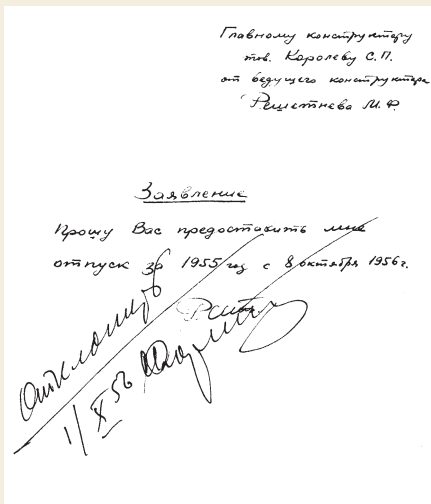 Главному конструктору
тов. Королеву С.П.
от ведущего конструктора
Решетнева М.Ф.
Заявление
Прошу Вас предоставить мне
отпуск за 1955 год с 8 октября 1956 г.
Отклонить
1/X 56